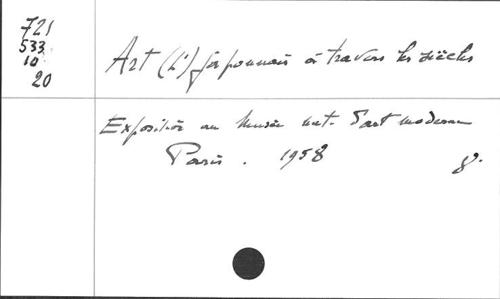 721
533
10
20
Art (L') japonais à travers les siècles
Exposition au Musée nat. d'art moderne
Paris. 1958 8°.